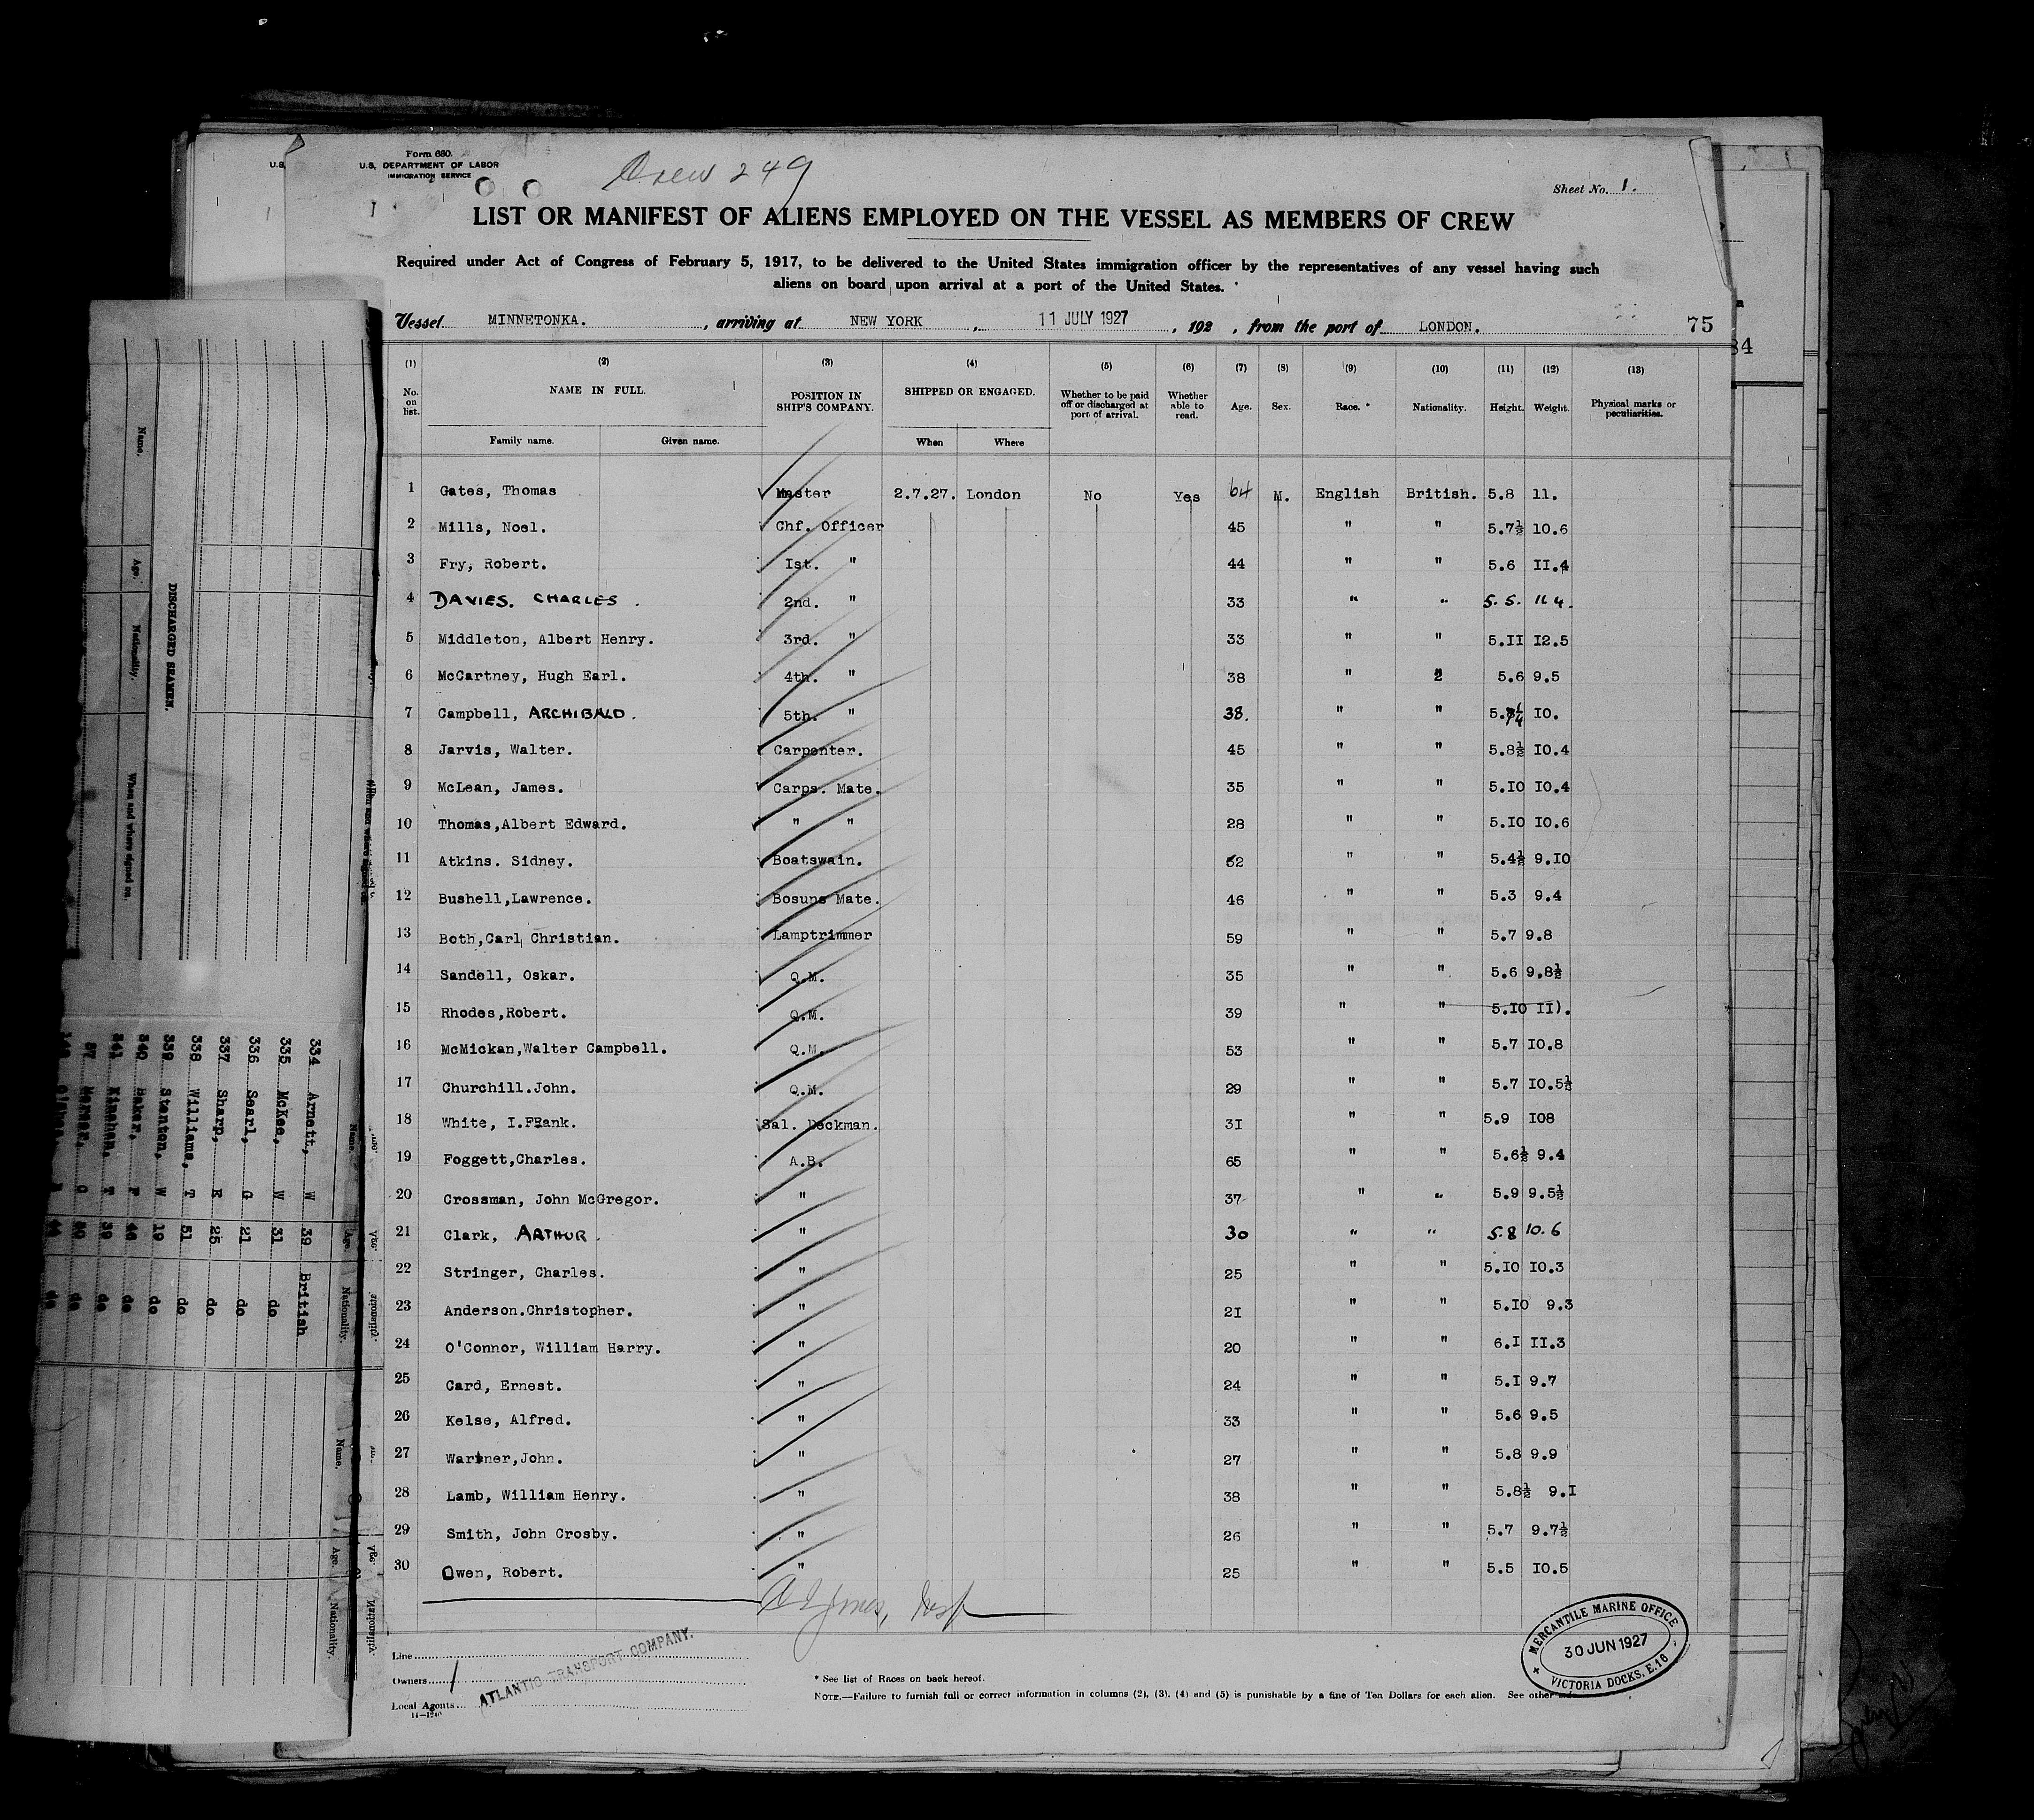 Form 680.
U.S. DEPARTMENT OF LABOR
IMMIGRATION SERVICE
U.S.
Crew 249
Sheet No. 1.
LIST OR MANIFEST OF ALIENS EMPLOYED ON THE VESSEL AS MEMBERS OF CREW
Required under Act of Congress of February 5, 1917, to be delivered to the United States immigration officer by the representatives of any vessel having such
aliens on board upon arrival at a port of the United States.
Vessel MINNETONKA. , arriving at NEW YORK , 11 JULY 1927 , 192 , from the port of LONDON.
75
84
(1) (2) (3) (4) (5) (6) (7) (8) (9) (10) (11) (12) (13)
No. on list. NAME IN FULL. POSITION IN SHIP'S COMPANY. SHIPPED OR ENGAGED. Whether to be paid off or discharged at port of arrival. Whether able to read. Age. Sex. Race. * Nationality. Height. Weight. Physical marks or peculiarities.
Family name. Given name. When Where
1 Gates, Thomas Master 2.7.27. London No Yes 64 M. English British. 5.8 11.
2 Mills, Noel. Chf. Officer 45 " " 5.7½ 10.6
3 Fry, Robert. Ist. " 44 " " 5.6 II.4
4 DAVIES. CHARLES . 2nd. " 33 " " 5.5. 11 4.
5 Middleton, Albert Henry. 3rd. " 33 " " 5.II I2.5
6 McCartney, Hugh Earl. 4th. " 38 " 2 5.6 9.5
7 Campbell, ARCHIBALD. 5th. " 38. " " I0.
8 Jarvis, Walter. Carpenter. 45 " " 5.8½ I0.4
9 McLean, James. Carps. Mate. 35 " " 5.I0 I0.4
10 Thomas,Albert Edward. " " 28 " " 5.I0 I0.6
11 Atkins. Sidney. Boatswain. 52 " " 5.4½ 9.I0
12 Bushell,Lawrence. Bosuns Mate. 46 " " 5.3 9.4
13 Both,Carl Christian. Lamptrimmer 59 " " 5.7 9.8
14 Sandell, Oskar. Q.M. 35 " " 5.6 9.8½
15 Rhodes,Robert. Q.M. 39 " " 5.I0 II).
16 McMickan,Walter Campbell. Q.M. 53 " " 5.7 I0.8
17 Churchill.John. Q.M. 29 " " 5.7 I0.5½
18 White, I.FRank. Sal. Deckman. 3I " " 5.9 I08
19 Foggett,Charles. A.B. 65 " " 5.6½ 9.4
20 Crossman, John McGregor. " 37 " " 5.9 9.5½
21 Clark, ARTHUR. " 30 " " 5.8 10.6
22 Stringer, Charles. " 25 " " 5.I0 I0.3
23 Anderson.Christopher. " 2I " " 5.I0 9.3
24 O'Connor, William Harry. " 20 " " 6.I II.3
25 Card, Ernest. " 24 " " 5.I 9.7
26 Kelse, Alfred. " 33 " " 5.6 9.5
27 Warner,John. " 27 " " 5.8 9.9
28 Lamb, William Henry. " 38 " " 5.8½ 9.I
29 Smith, John Crosby. " 26 " " 5.7 9.7½
30 Owen, Robert. " 25 " " 5.5 I0.5
Line
Owners
Local Agents
14—1240
ATLANTIC TRANSPORT COMPANY.
* See list of Races on back hereof.
NOTE.—Failure to furnish full or correct information in columns (2), (3), (4) and (5) is punishable by a fine of Ten Dollars for each alien. See other
MERCANTILE MARINE OFFICE
30 JUN 1927
VICTORIA DOCKS, E.16
DISCHARGED SEAMEN.
Name. Age. Nationality. When and where signed on.
Name. Age. Nationality.
334 Arnett, W 39 British
335 McKee, W 31 do
336 Searl, G 21 do
337 Sharp, E 25 do
338 Williams, T 51 do
339 Stenton, W 19 do
340 Baker, F 46 do
341 Kinahan, T 39 do
Name. Age. Nationality.